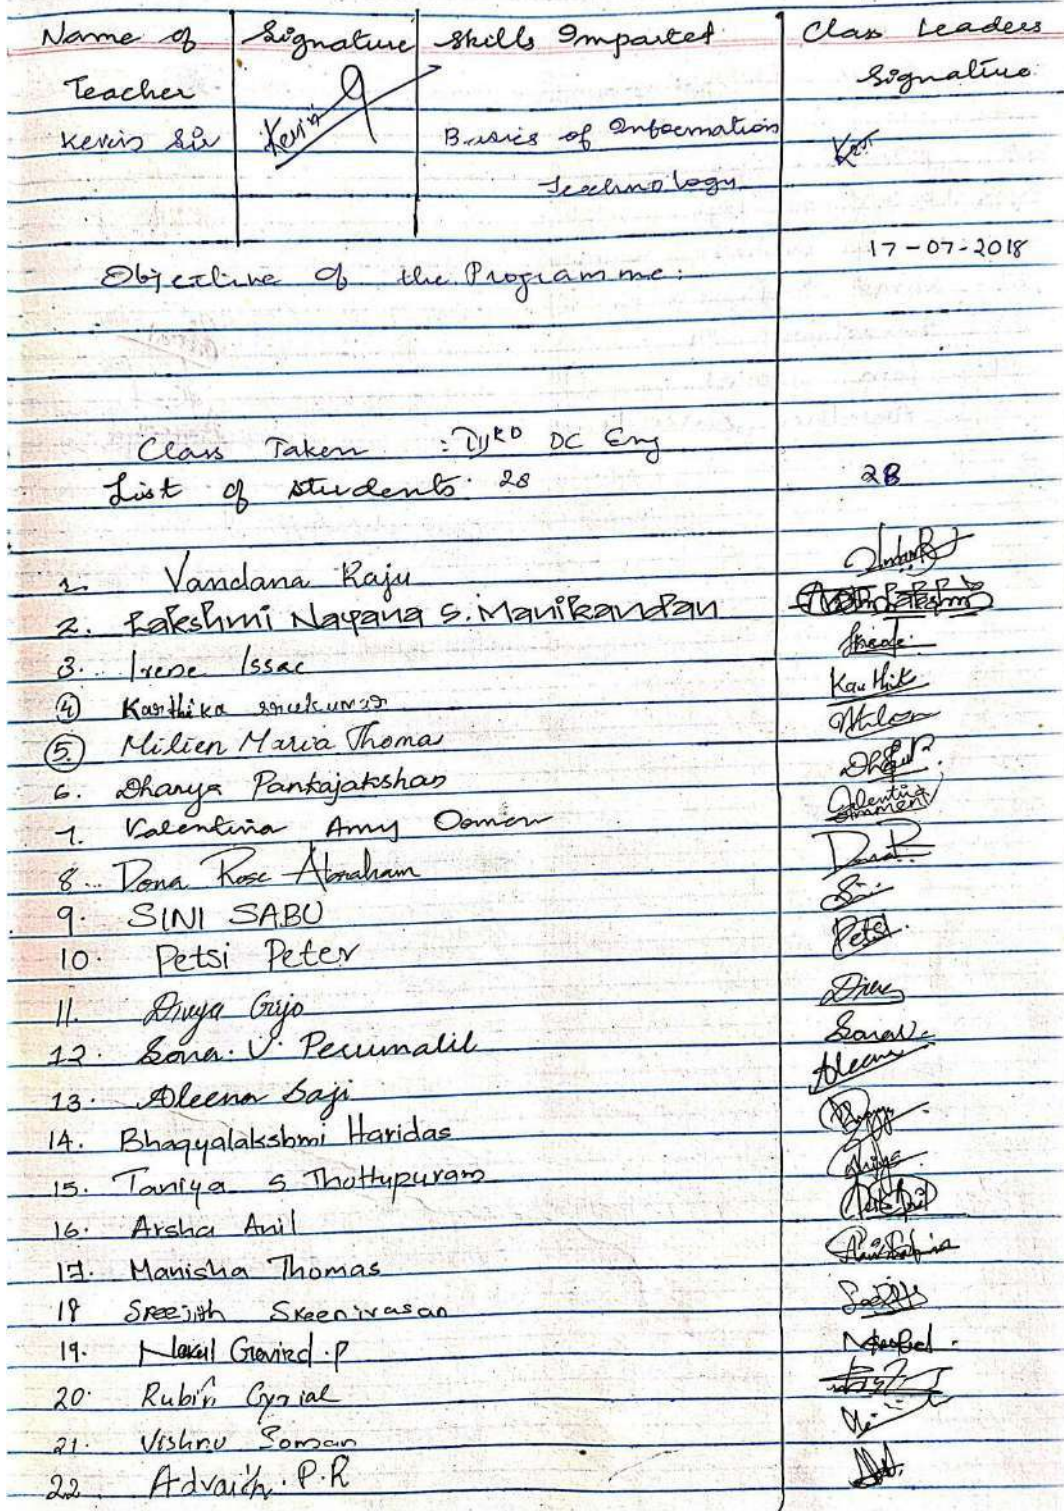 Name of Signature Skills Imparted Class Leaders
Teacher Signature
Kevin Sir Kevin Basics of Information
Technology
17-07-2018
Objective of the Programme:
Class Taken : IIIRD DC Eng
List of students 28 28
1. Vandana Raju
2. Lakshmi Nayana S. Manikandan
3. Irene Issac
4 Karthika Sreekumar Karthik
5. Milien Maria Thomas
6. Dhanya Pankajakshan
7. Valentina Amy Oomen
8. Dona Rose Abraham
9. SINI SABU Sini
10. Petsi Peter Petsi
11. Divya Grijo
12. Sona. V. Perumalil
13. Aleena Saji
14. Bhagyalakshmi Haridas
15. Taniya S Thottupuram
16. Arsha Anil
17. Manisha Thomas
18 Sreejith Sreenivasan
19. Nakul Govind.P
20. Rubin Cyrial
21. Vishnu Soman
22 Advaith. P.R